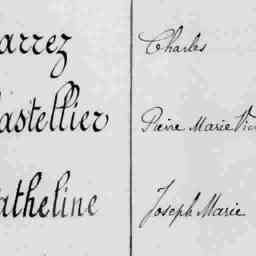 arrez Charles
astellier Pierre Marie Vic
atheline Joseph Marie